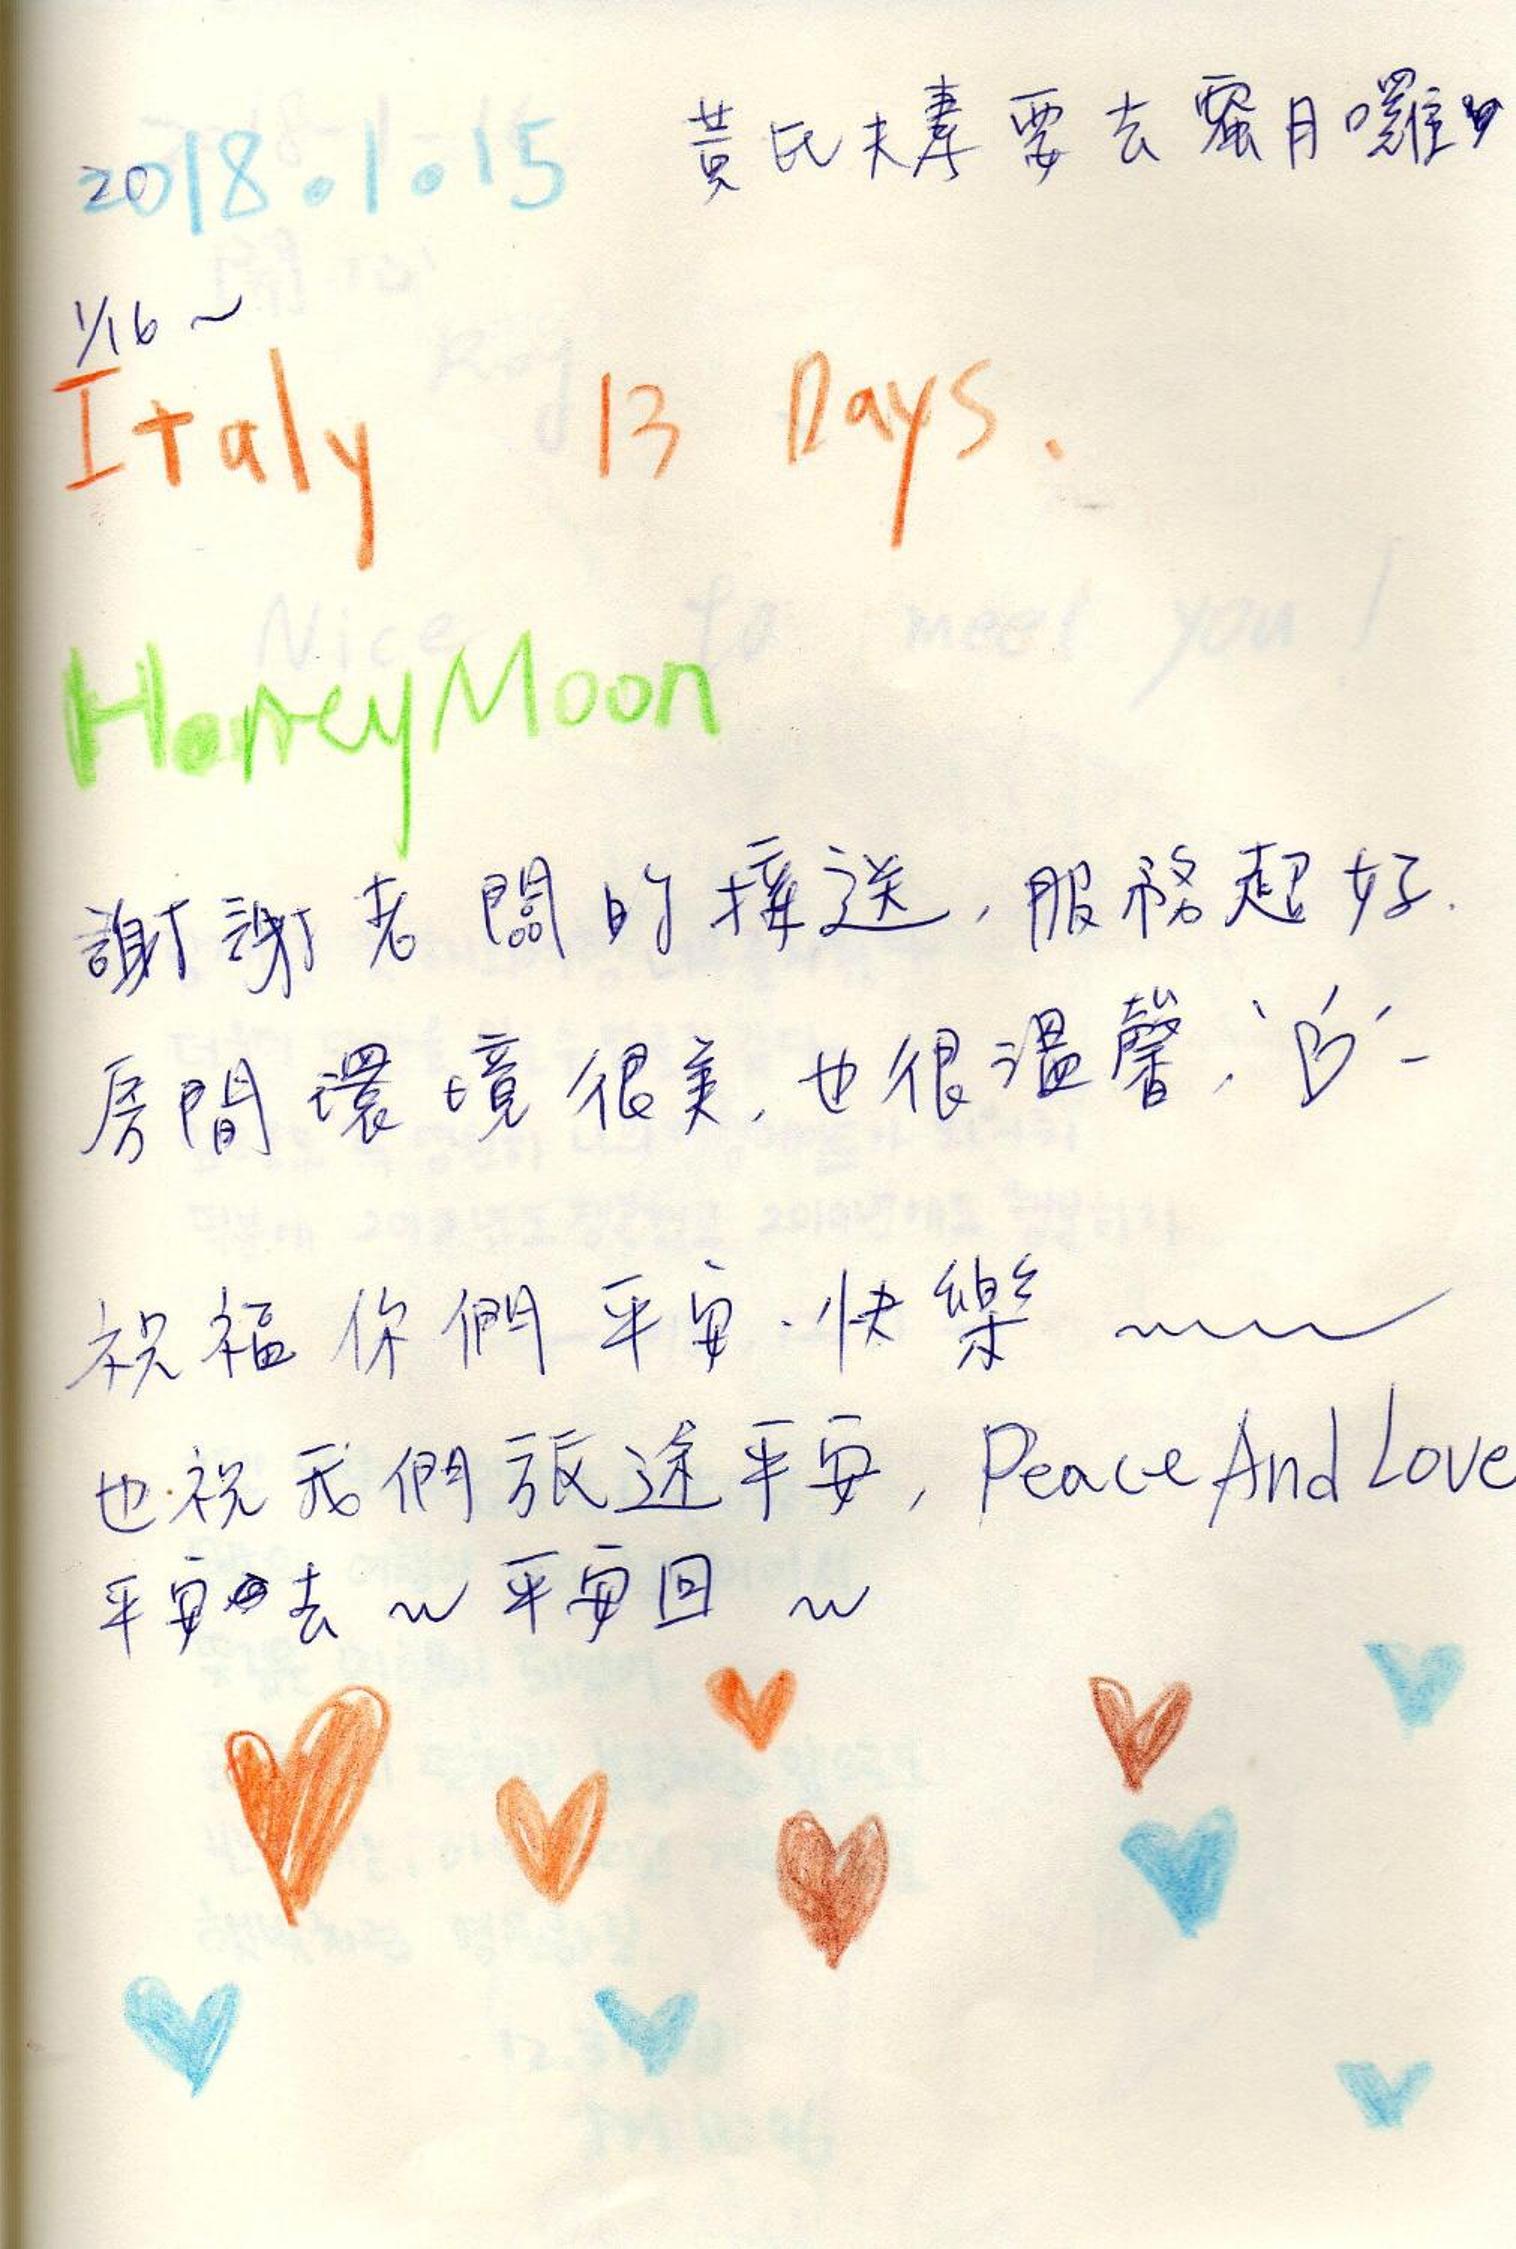 2018.1.15 黃氏夫妻要去蜜月囉
1/16 ~
Italy 13 Days.
HoneyMoon
謝謝老闆的接送, 服務超好.
房間環境很美, 也很溫馨,
祝福你們平安.快樂 ~~~~
也祝我們旅途平安, Peace And Love
平安去 ~~ 平安回 ~~
Nice to meet you!